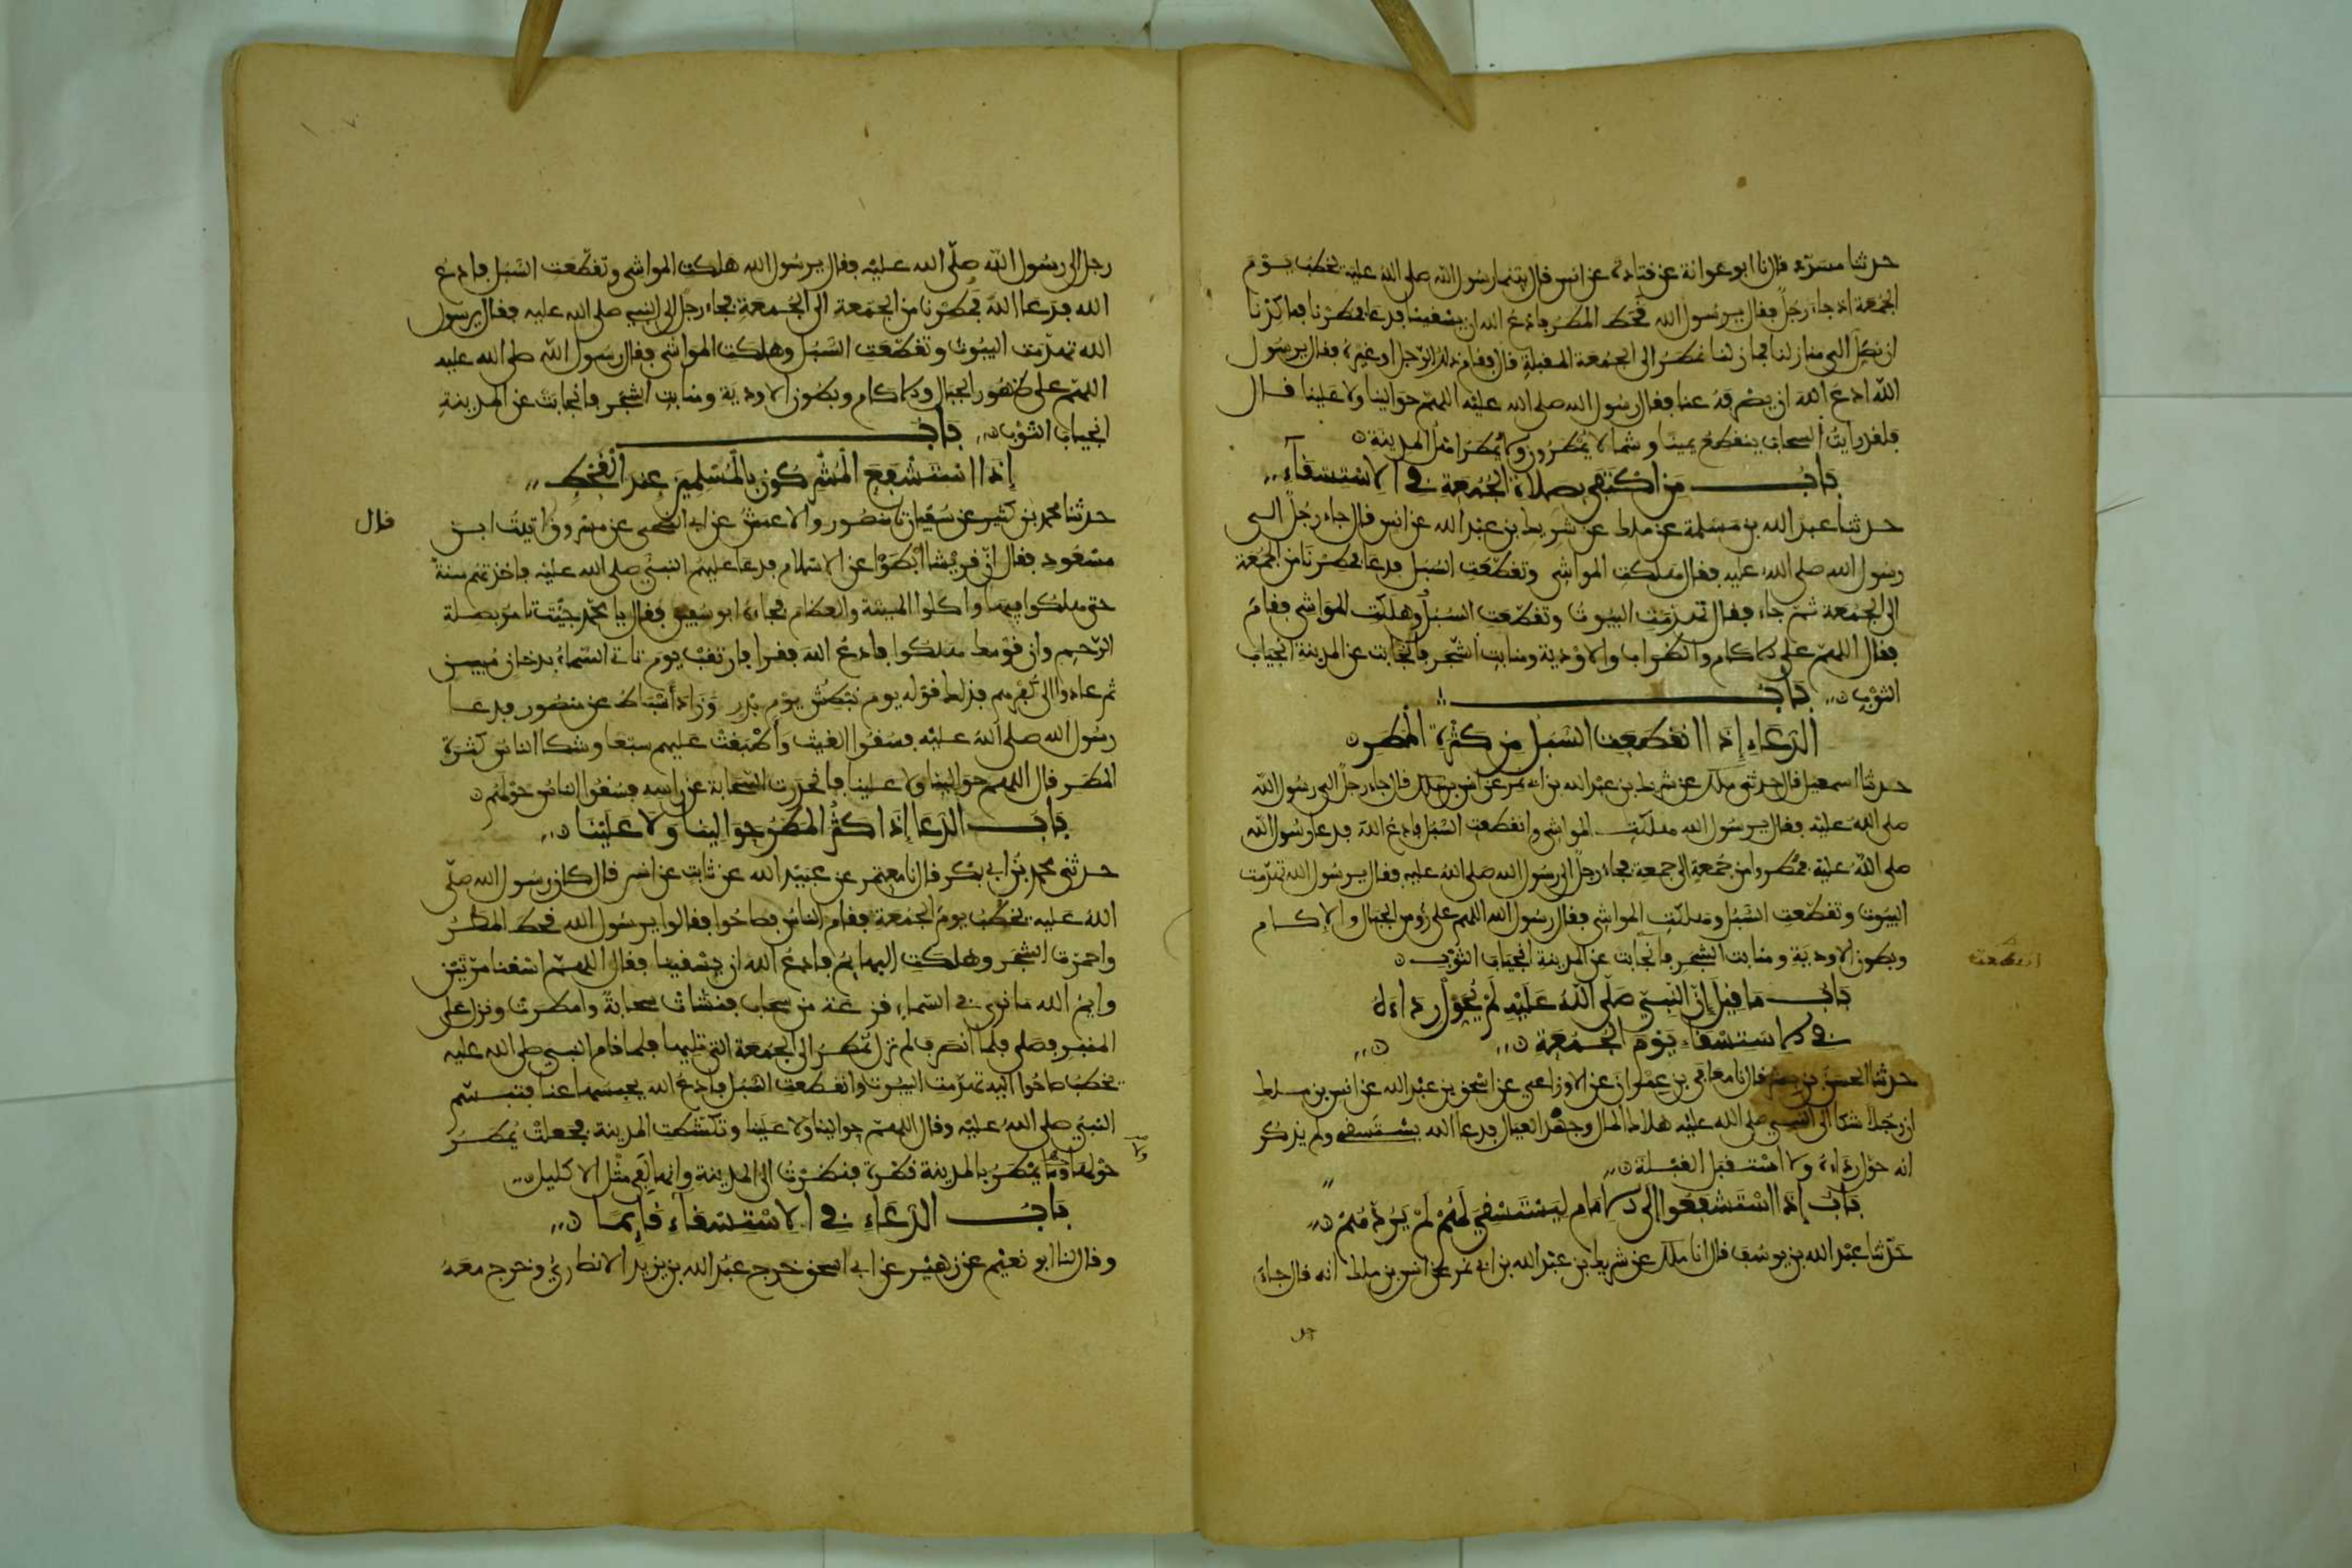 حدثنا مسدد قال نا ابو عوانة عن قتادة عن انس قال بينما رسول الله صلى الله عليه يخطب يوم
الجمعة اذ جاء رجل فقال يرسول الله قحط المطر فادع الله ان يسقينا فدعا فمطرنا فما كدنا
ان نصل الى منازلنا فما زلنا نمطر الى الجمعة المقبلة قال فقام ذلك الرجل او غيره فقال يرسول
الله ادع الله ان يصرفه عنا فقال رسول الله صلى الله عليه اللهم حوالينا ولا علينا قال
فلقد رايت السحاب ينقطع يمينا وشمالا يمطرون ولا يمطر اهل المدينة
باب من اكتفى بصلاة الجمعة في الاستسقاء
حدثنا عبد الله بن مسلمة عن ملك عن شريك بن عبد الله عن انس قال جاء رجل الى
رسول الله صلى الله عليه فقال هلكت المواشي وتقطعت السبل فدعا فمطرنا من الجمعة
الى الجمعة ثم جاء فقال تهدمت البيوت وتقطعت السبل وهلكت المواشي فقام
فقال اللهم على الاكام والظراب والاودية ومنابت الشجر فانجابت عن المدينة انجياب
الثوب باب
الدعاء إذا انقطعت السبل من كثرة المطر
حدثنا اسمعيل قال حدثني ملك عن شريك بن عبد الله بن ابي نمر عن انس بن ملك قال جاء رجل الى رسول الله
صلى الله عليه فقال يرسول الله هلكت المواشي وانقطعت السبل فادع الله فدعا رسول الله
صلى الله عليه فمطروا من جمعة الى جمعة فجاء رجل الى رسول الله صلى الله عليه فقال يرسول الله تهدمت
البيوت وتقطعت السبل وهلكت المواشي فقال رسول الله اللهم على رءوس الجبال والاكام
وبطون الاودية ومنابت الشجر فانجابت عن المدينة انجياب الثوب
انقطعت
باب ما قيل إن النبي صلى الله عليه لم يحول رداءه
في الاستسقاء يوم الجمعة
حدثنا الحسن بن بشر قال نا معافى بن عمران عن الاوزاعي عن اسحق بن عبد الله عن انس بن ملك
ان رجلا شكا الى النبي صلى الله عليه هلاك المال وجهد العيال فدعا الله يستسقي ولم يذكر
انه حول رداءه ولا استقبل القبلة
باب إذا استشفعوا الى الامام ليستسقي لهم لم يردهم
حدثنا عبد الله بن يوسف قال انا ملك عن شريك بن عبد الله بن ابي نمر عن انس بن ملك انه قال جاء
رجل الى رسول الله صلى الله عليه فقال يرسول الله هلكت المواشي وتقطعت السبل فادع
الله فدعا الله فمطرنا من الجمعة الى الجمعة فجاء رجل الى النبي صلى الله عليه فقال يرسول
الله تهدمت البيوت وتقطعت السبل وهلكت المواشي فقال رسول الله صلى الله عليه
اللهم على ظهور الجبال والاكام وبطون الاودية ومنابت الشجر فانجابت عن المدينة
انجياب الثوب باب
إذا استشفع المشركون بالمسلمين عند القحط
حدثنا محمد بن كثير عن سفيان نا منصور والاعمش عن ابي الضحى عن مسروق اتيت ابن
قال
مسعود فقال ان قريشا ابطؤا عن الاسلام فدعا عليهم النبي صلى الله عليه فاخذتهم سنة
حتى هلكوا فيها واكلوا الميتة والعظام فجاءه ابو سفين فقال يا محمد جئت تامر بصلة
الرحم وان قومك هلكوا فادع الله فقرا فارتقب يوم تاتي السماء بدخان مبين
ثم عادوا الى كفرهم فذلك قوله يوم نبطش يوم بدر وزاد اسباط عن منصور فدعا
رسول الله صلى الله عليه فسقوا الغيث واطبقت عليهم سبعا وشكا الناس كثرة
المطر قال اللهم حوالينا ولا علينا فانحدرت السحابة عن راسه فسقوا الناس حولهم
باب الدعا إذا كثر المطر حوالينا ولا علينا
حدثني محمد بن ابي بكر قال نا معتمر عن عبيد الله عن ثابت عن انس قال كان رسول الله صلى
الله عليه يخطب يوم الجمعة فقام الناس فصاحوا فقالوا يرسول الله قحط المطر
واحمرت الشجر وهلكت البهائم فادع الله ان يسقينا فقال اللهم اسقنا مرتين
وايم الله ما نرى في السماء قزعة من سحاب فنشات سحابة وامطرت ونزل على
المنبر فصلى فلما انصرف لم تزل تمطر الى الجمعة التي تليها فلما قام النبي صلى الله عليه
يخطب صاحوا اليه تهدمت البيوت وانقطعت السبل فادع الله يحبسها عنا فتبسم
النبي صلى الله عليه وقال اللهم حوالينا ولا علينا وتكشطت المدينة فجعلت تمطر
حولها وما يمطر بالمدينة قطرة فنظرت الى المدينة وانها لفي مثل الاكليل
ولا
باب الدعاء في الاستسقاء قايما
وقال لنا ابو نعيم عن زهير عن ابي اسحق خرج عبد الله بن يزيد الانصاري وخرج معه